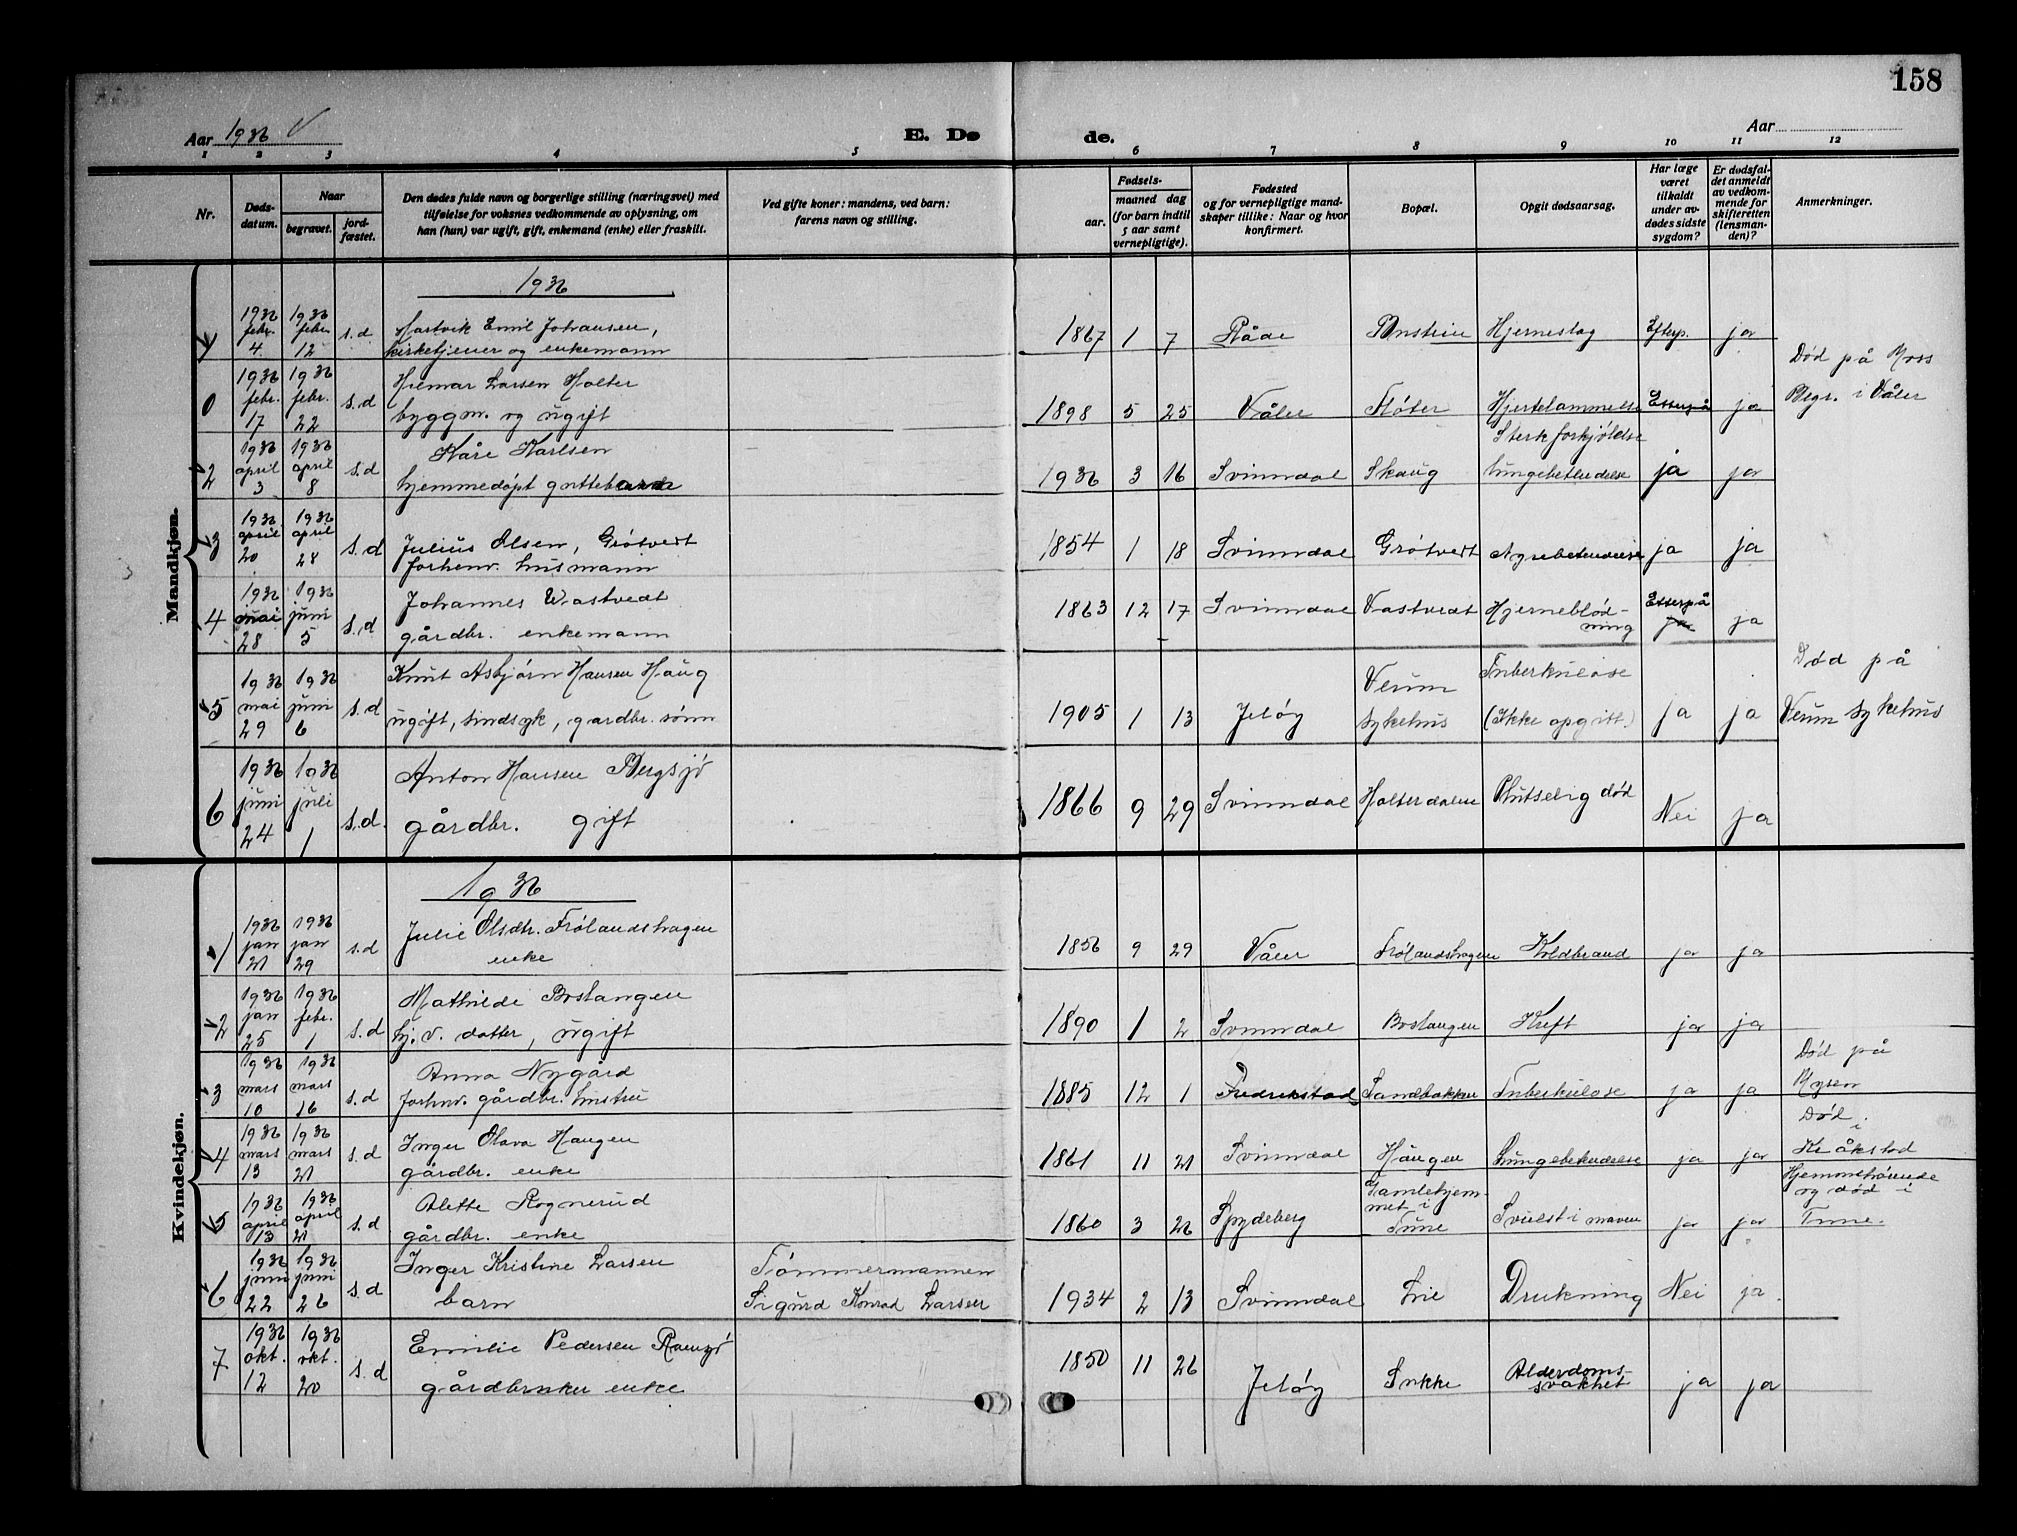 158
Aar 1936
E. Dø de.
Aar
1 2 3 4 5 6 7 8 9 10 11 12
Nr.
Døds-
datum.
Naar
begravet.
jord-
fæstet.
Den dødes fulde navn og borgerlige stilling (næringsvei) med
tilføielse for voksnes vedkommende av oplysning, om
han (hun) var ugift, gift, enkemand (enke) eller fraskilt.
Ved gifte koner: mandens, ved barn:
farens navn og stilling.
Fødsels-
aar.
maaned dag
(for barn indtil
5 aar samt
vernepligtige).
Fødested
og for vernepligtige mand-
skaper tillike: Naar og hvor
konfirmert.
Bopæl.
Opgit dødsaarsag.
Har læge
været
tilkaldt
under av-
dødes sidste
sygdom?
Er dødsfal-
det anmeldt
av vedkom-
mende for
skifteretten
(lensman-
den)?
Anmerkninger.
Mandkjøn.
1936
1 1936 febr. 4 1936 febr. 12 s.d Hartvik Emil Johansen,
kirketjener og enkemann 1867 1 7 Råde Hjerneslag Efterp. ja
0 1936 febr. 17 1936 febr. 22 s.d Hilmar Larsen Holter
byggm. og ugift 1898 5 25 Våler Fløter Hjertelammelse Etterpå ja
Død på Moss
Begr. i Våler
2 1936 april 3 1936 april 8 s.d Kåre Karlsen
hjemmedøpt guttebarn 1936 3 16 Svinndal Skaug Sterk forkjølelse
lungebetendelse ja ja
3 1936 april 20 1936 april 28 s.d Julius Olsen, Grøtvedt
forhenv. husmann 1854 1 18 Svinndal Grøtvedt Nyrebetendelse ja ja
4 1936 mai 28 1936 juni 5 s.d Johannes Wastvedt
gårdbr. enkemann 1863 12 17 Svinndal Vastvedt Hjerneblød-
ning Etterpå ja ja
5 1936 mai 29 1936 juni 6 s.d Knut Asbjørn Hansen Haug
ugift, sindsyk, gardbr. sønn 1905 1 13 Jeløy Veum
sykehus Tuberkulose
(Ikke opgitt.) ja ja
Død på
Veum sykehus
6 1936 juni 24 1936 juli 1 s.d. Anton Hansen Bergsjø
gårdbr. gift 1866 9 29 Svinndal Holterdalen Plutselig død Nei ja
Kvindekjøn.
1936
1 1936 jan 21 1936 jan 29 s.d Julie Olsdtr. Frølandshagen
enke 1856 9 29 Våler Frølandshagen Koldbrand ja ja
2 1936 jan 25 1936 febr. 1 s.d Mathilde Boslangen
hj. v. datter, ugift 1890 1 2 Svinndal Boslangen Kreft ja ja
3 1936 mars 10 1936 mars 16 s.d Anna Nygård
forhnv. gårdbr. hustru 1885 12 1 Fredrikstad Sandbakken Tuberkulose ja ja
Død på
Mysen
4 1936 mars 13 1936 mars 21 s.d Inger Olava Haugen
gårdbr. enke 1861 11 21 Svinndal Haugen Lungebetendelse ja ja
Død i
Kråkstad
5 1936 april 13 1936 april 21 s.d Alette Rognerud
gårdbr. enke 1860 3 26 Spydeberg Gamlehjem-
met i
Tune Svulst i maven ja ja
Hjemmehørende
og død i
Tune.
6 1936 juni 22 1936 juni 26 s.d Inger Kristine Larsen
barn Tømmermannen
Sigurd Konrad Larsen 1934 2 13 Svinndal Lie Drukning Nei ja.
7 1936 okt. 12 1936 okt. 20 s.d Emilie Pedersen
gårdbruker enke 1850 11 26 Jeløy Sukke Alderdoms-
svakhet ja ja